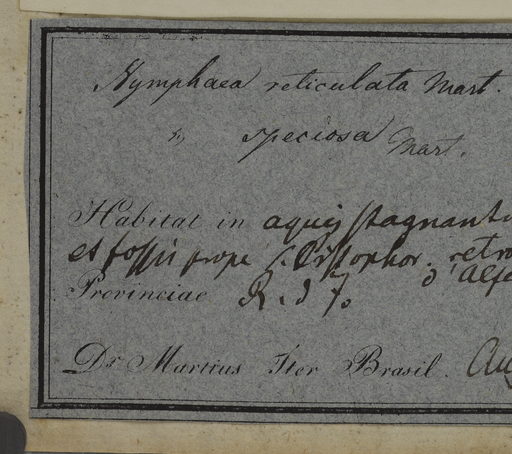 Nymphaea reticulata Mart.
" speciosa Mart.
Habitat in aquis stagnant
et fossis prope S. Cristophor. retro
d'Alf
Provinciae R. d J.
Dr Martius Iter Brasil. Au